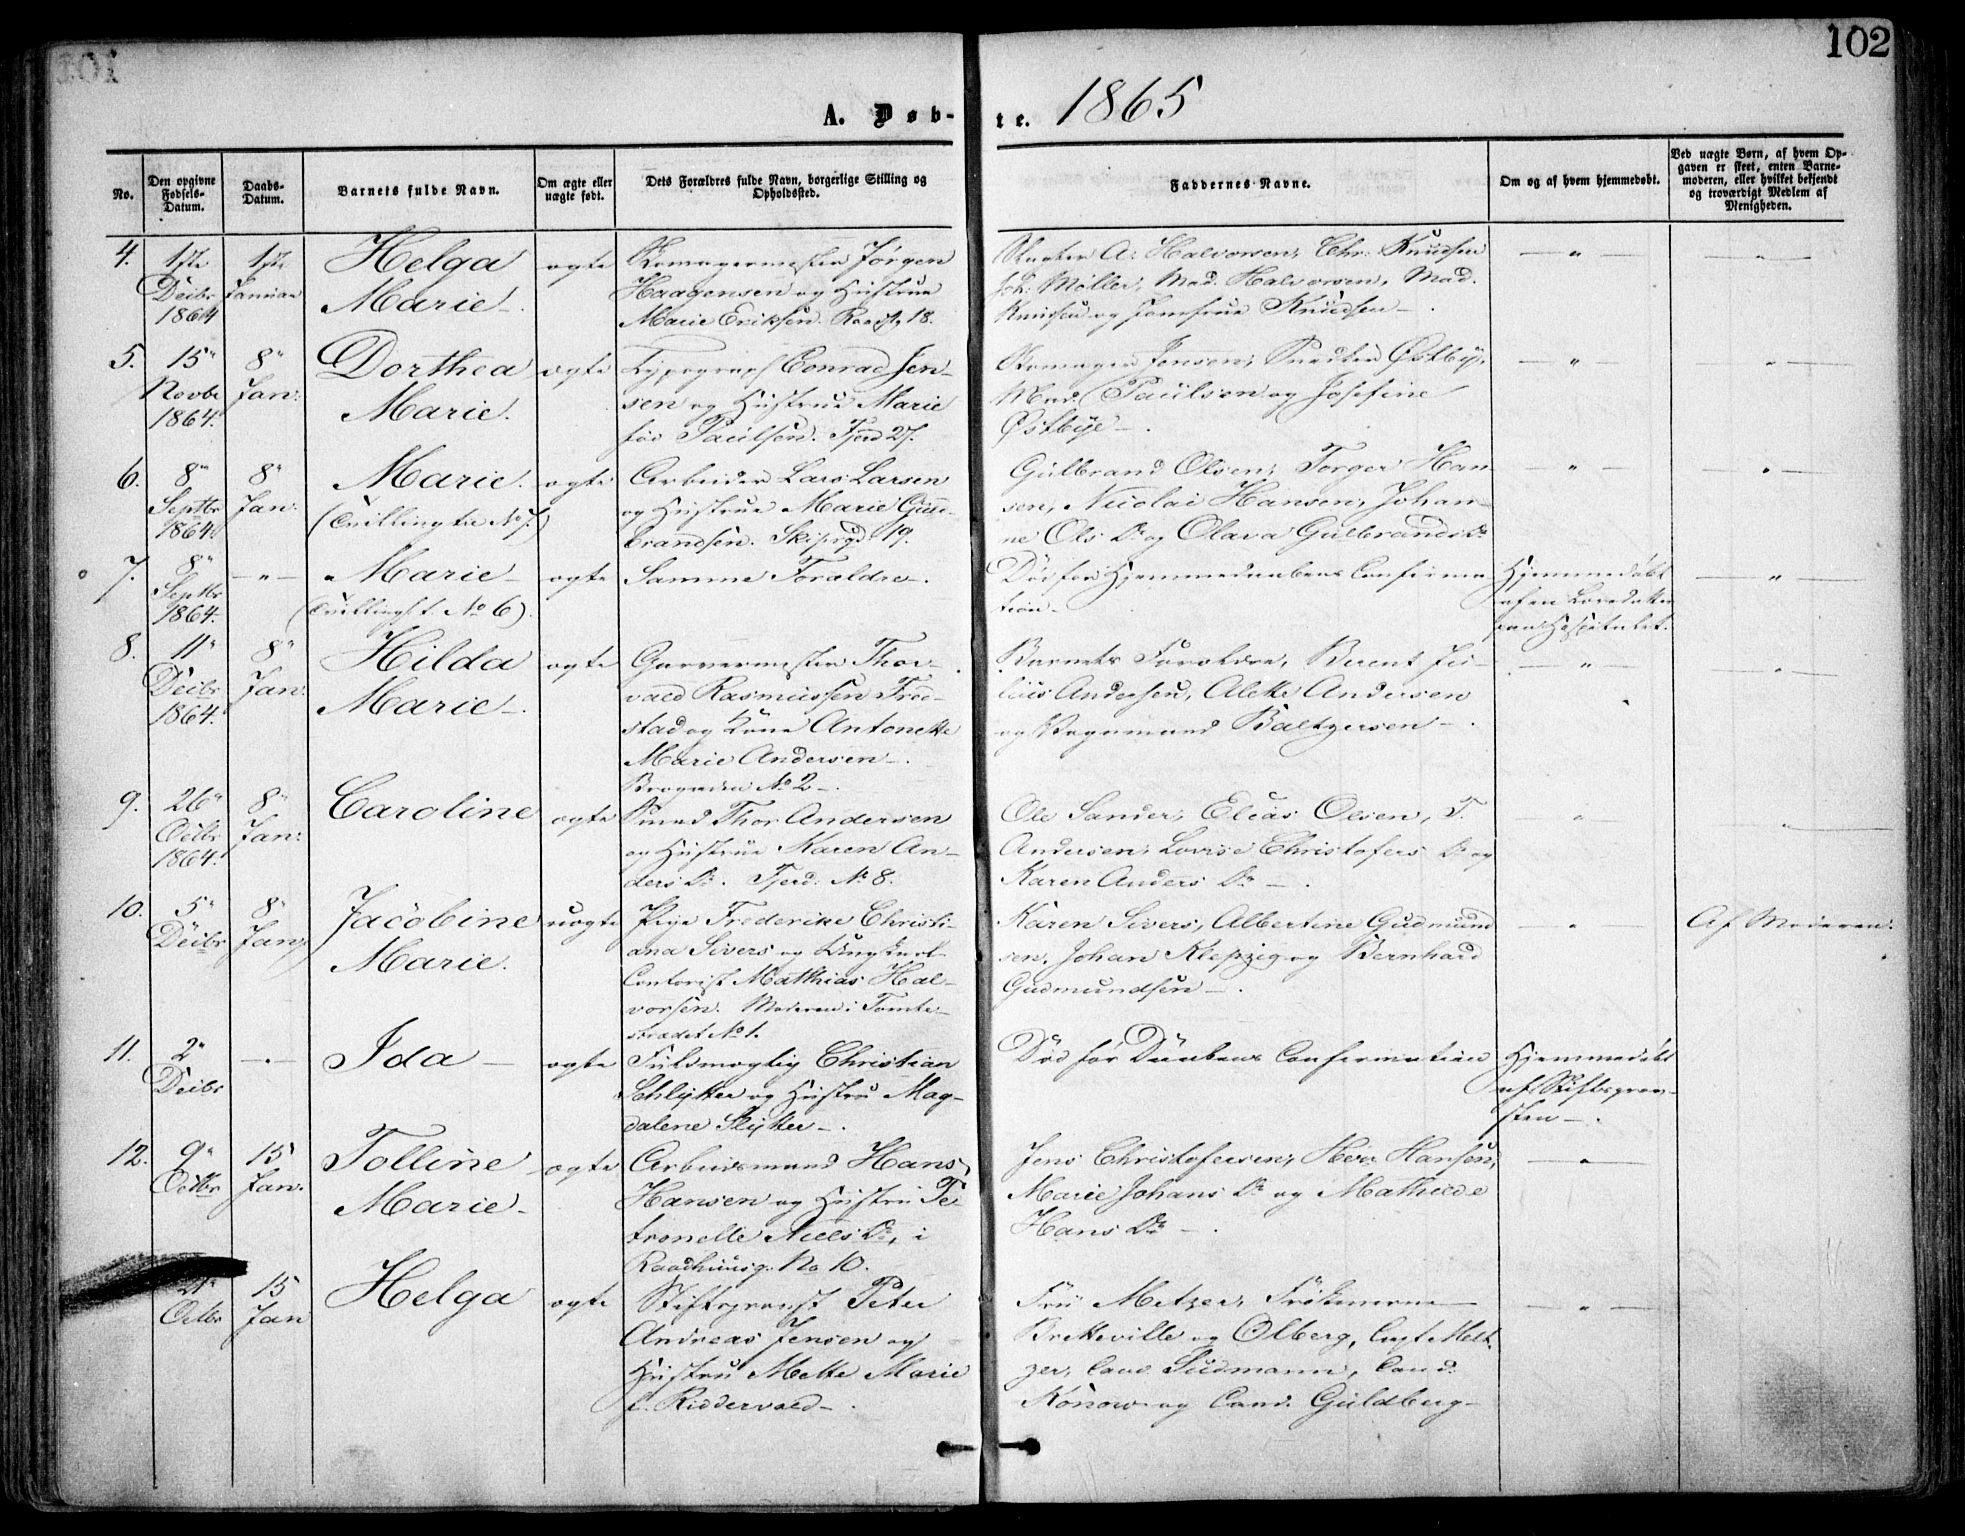 101
102
A. Døb-
te. 1865
No.
Den opgivne
Fødsels-
Datum.
Daabs-
Datum.
Barnets fulde Navn.
Om ægte eller
uægte født.
Dets Forældres fulde Navn, borgerlige Stilling og
Opholdssted.
Faddernes Navne.
Om og af hvem hjemmedøbt.
Ved uægte Børn, af hvem Op-
gaven er skeet, enten Barne-
moderen, eller hvilket bekjendt
og troværdigt Medlem af
Menigheden.
4.
1ste
Decbr
1864
1ste
Januar
Helga
Marie
ægte
Skomagermester Jørgen
Haagensen og Hustrue
Marie Eriksen. 18.
A. Halvorsen, Chr. Knudsen
Joh. Møller, Mad. Halvorsen, Mad.
Knudsen og Jomfrue Knudsen
5.
15"
Novbr
1864.
8"
Jan:
Dorthea
Marie.
ægte
Typograph Conrad Jen-
sen og Hustrue Marie
fød Paulsen. Tjerd 27.
Skomager Jensen, Snedker Østbye,
Mad. Paulsen og Josefine
Østbye
6.
8"
Septbr
1864
8"
Jan:
Marie.
(Tvilling til No 7.)
ægte
Arbeider Lars Larsen
og Hustrue Marie Gul-
brandsen. Skiprgd 19.
Gulbrand Olsen, Torger Han
sen, Nicolai Hansen, Johan-
ne Ols Dr og Olava Gulbrands Dr
7.
8"
Septbr
1864.
Marie
(Tvilling t. No 6).
ægte
Samme Forældre.
Død før Hjemmedaabens Confirma
tion
Hjemmedøbt
af en
paa Hospitalet.
8.
11"
Decbr
1864.
8"
Jan.
Hilda
Marie
ægte
Garvermester Thor-
vald Rasmussen Fred-
stad og Kone Antonette
Marie Andersen
Brogaden No 2
Barnets Forældre, Berent Ju-
lius Andersen, Alette Andersen
og Baltzersen
9.
26"
Octbr
1864.
8"
Jan:
Caroline
ægte
Smed Thor Andersen
og Hustrue Karen An-
ders Dr. Tjerd: No 8.
Ole Sander, Elias Olsen, T.
Andersen, Lovise Christofers Dr og
Karen Anders Dr
10.
5"
Decbr
8"
Jan
Jacobine
Marie.
uægte
Pige Frederike Christi-
ana Sivers og Ungkarl
Contorist Matthias Hal-
vorsen. Moderen i Tomte-
strædet No 1.
Karen Sivers, Albertine Gudmund
sen, Johan Klepzig og Bernhard
Gudmundsen
Af Moderen.
11.
2"
Decbr
Ida
ægte
Fuldmægtig Christian
Schlytter og Hustru Mag-
dalene Slytter
Død før Daabens Confirmation
Hjemmedøbt
af Stiftsprov-
sten
12.
9"
Octbr
15
Jan.
Tolline
Marie
ægte
Arbeidsmand Hans
Hansen og Hustru Pe-
tronelle Niels Dr, i
Raadhusg. No 10.
Jens Christofersen, Hans Hansen,
Marie Johans Dr og Mathilde
Hans Dr
21"
Octbr
15
Jan
Helga
ægte
Stiftsprovst Peter
Andreas Jensen og
Hustru Mette Marie
f. Riddervold
Fru Metzer, Frøknerne
Bretteville og Olberg, Capt Melt-
zer, Cand. Sudmann, Cand.
Konow og Cand. Guldberg